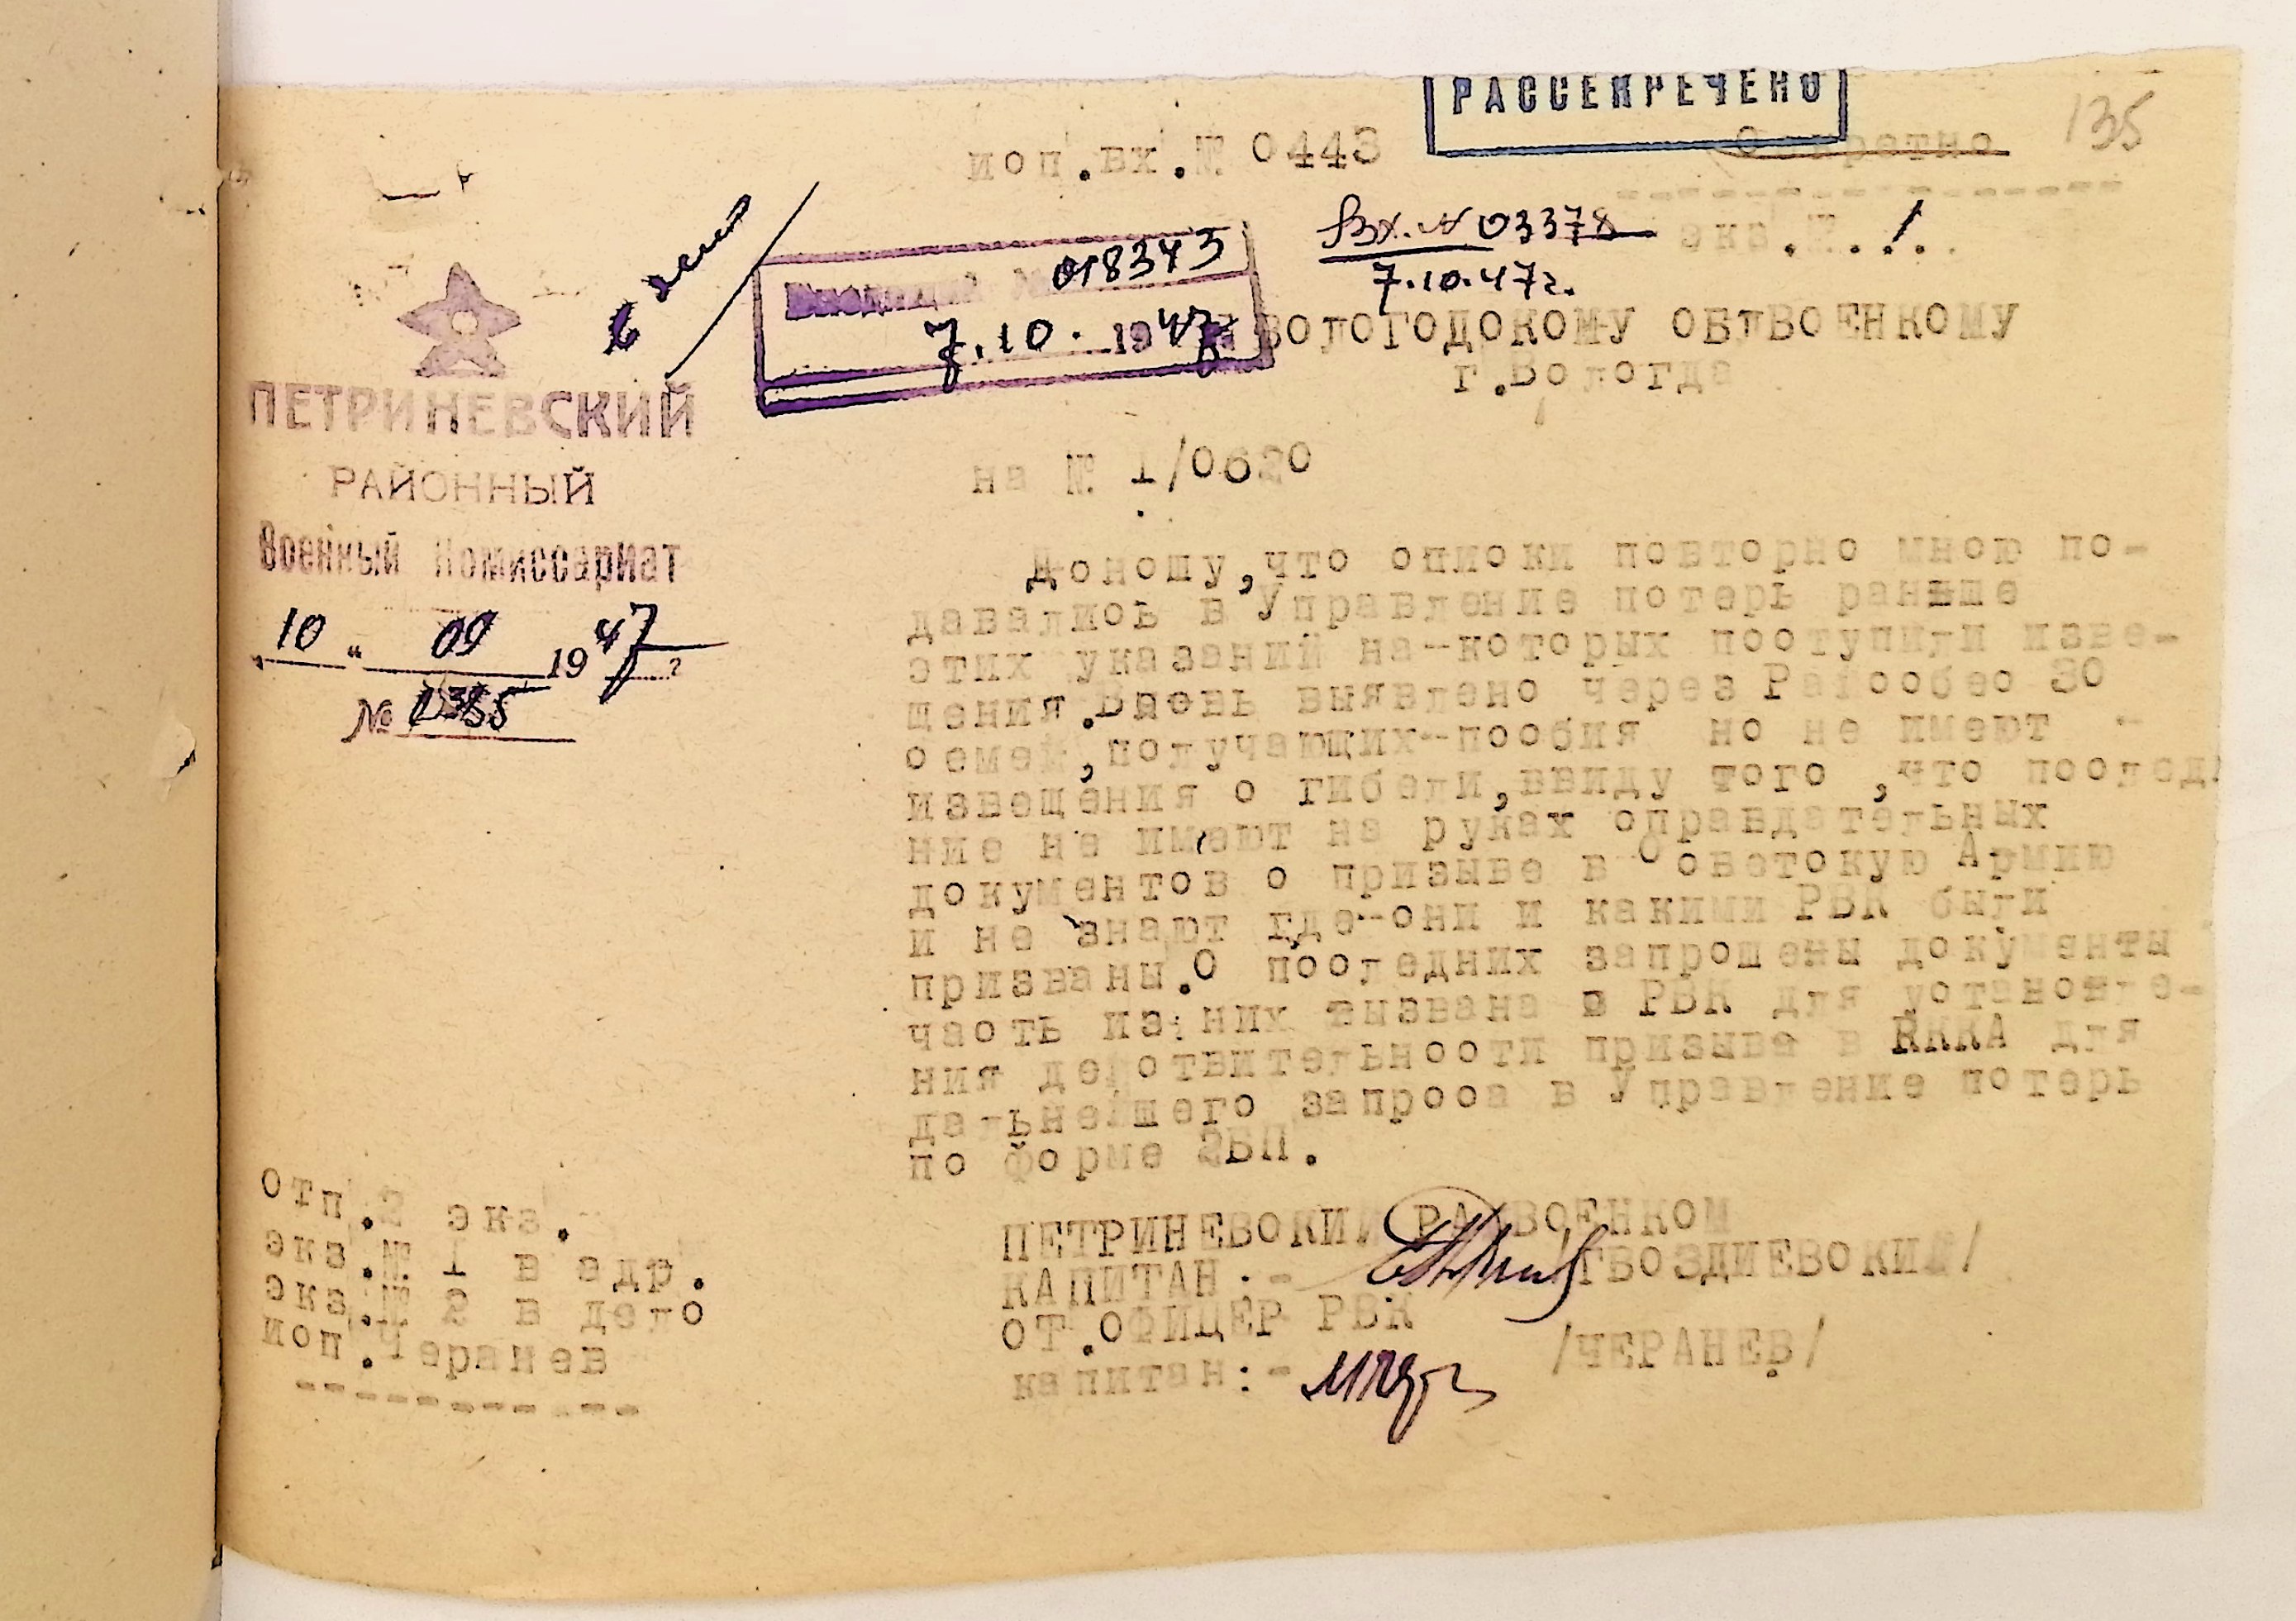 РАССЕКРЕЧЕНО
135
исп.вх.№ 0443
Секретно
Вх. № 03378
экз.№.1..
7.10.47г.
018343
7.10. 1947
ВОЛОГОДСКОМУ ОБЛВОЕНКОМУ
г.Вологда
ПЕТРИНЕВСКИЙ
РАЙОННЫЙ
Военный Комиссариат
10 " 09 1947 г
№
на № 1/0620
Доношу,что списки повторно мною по-
давались в Управление потерь раньше
этих указаний на-которых поступили изве-
щения.Вновь выявлено через Райсобес 30
семей,получающих-пособия но не имеют -
извещения о гибели,ввиду того ,что послед-
ние не имеют на руках оправдательных
документов о призыве в Советскую Армию
и не знают где-они и какими РВК были
призваны.О последних запрошены документы
часть из них вызвана в РВК для установле-
ния действительности призыва в РККА для
дальнейшего запроса в Управление потерь
по форме 2БП.
ПЕТРИНЕВСКИЙ РАЙВОЕНКОМ
КАПИТАН:- /ГВОЗДИЕВСКИЙ/
СТ.ОФИЦЕР РВК
капитан:- /ЧЕРАНЕВ/
Отп.2 экз.
экз.№ 1 в адр.
экз.№ 2 в дело
исп.Черанев
------------